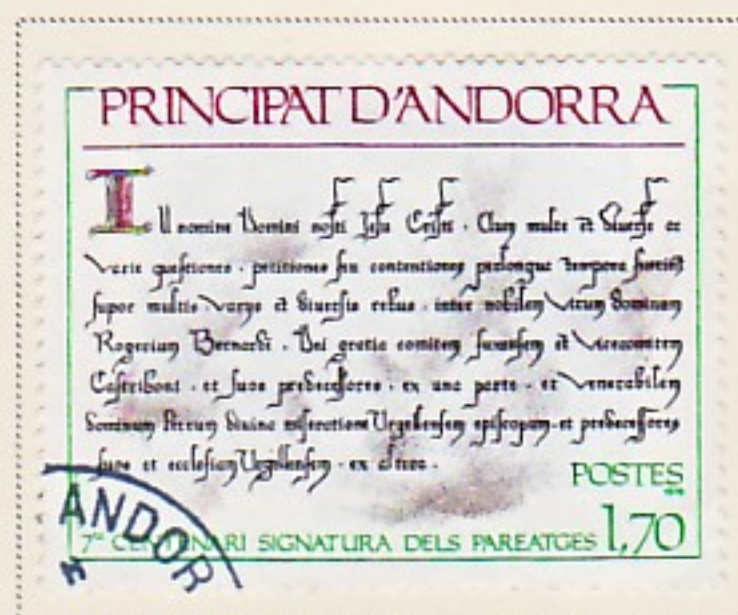 PRINCIPAT D'ANDORRA
In nomine Domini nostri Jesu Cristi. Cum multe et diverse ac
varie questiones. petitiones seu contentiones perlongue tempora
super multis. varys et diversis rebus. inter nobilem virum dominum
Rogerium Bernardi. Dei gratia comitem fuxensem et vicecomitem
Castriboni. et suos predecessores. ex una parte. et venerabilem
dominum Petrum divina miseratione Urgellensem episcopum. et predecessores
suos et ecclesiam Urgellensem. ex altera.
POSTES
7è CENTENARI SIGNATURA DELS PAREATGES 1,70
ANDOR